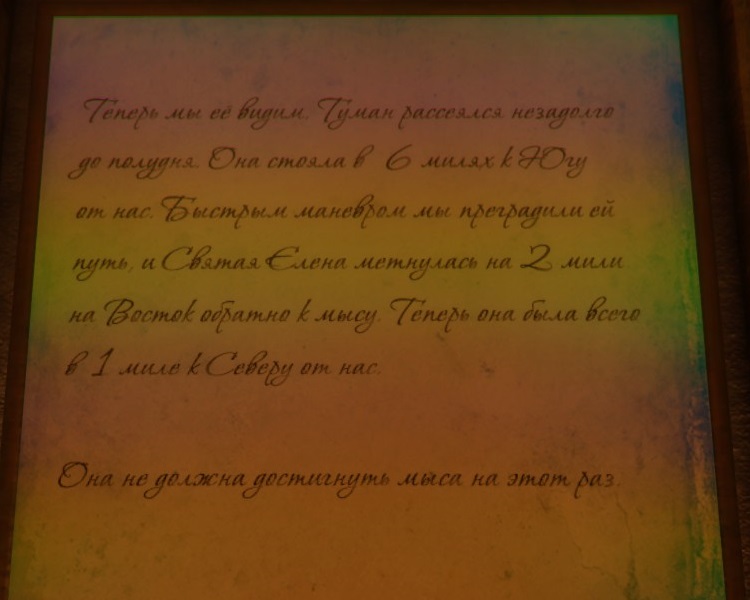 Теперь мы её видим. Туман рассеялся незадолго
до полудня. Она стояла в 6 милях к Югу
от нас. Быстрым маневром мы преградили ей
путь, и Святая Елена метнулась на 2 мили
на Восток обратно к мысу. Теперь она была всего
в 1 миле к Северу от нас.
Она не должна достигнуть мыса на этот раз.